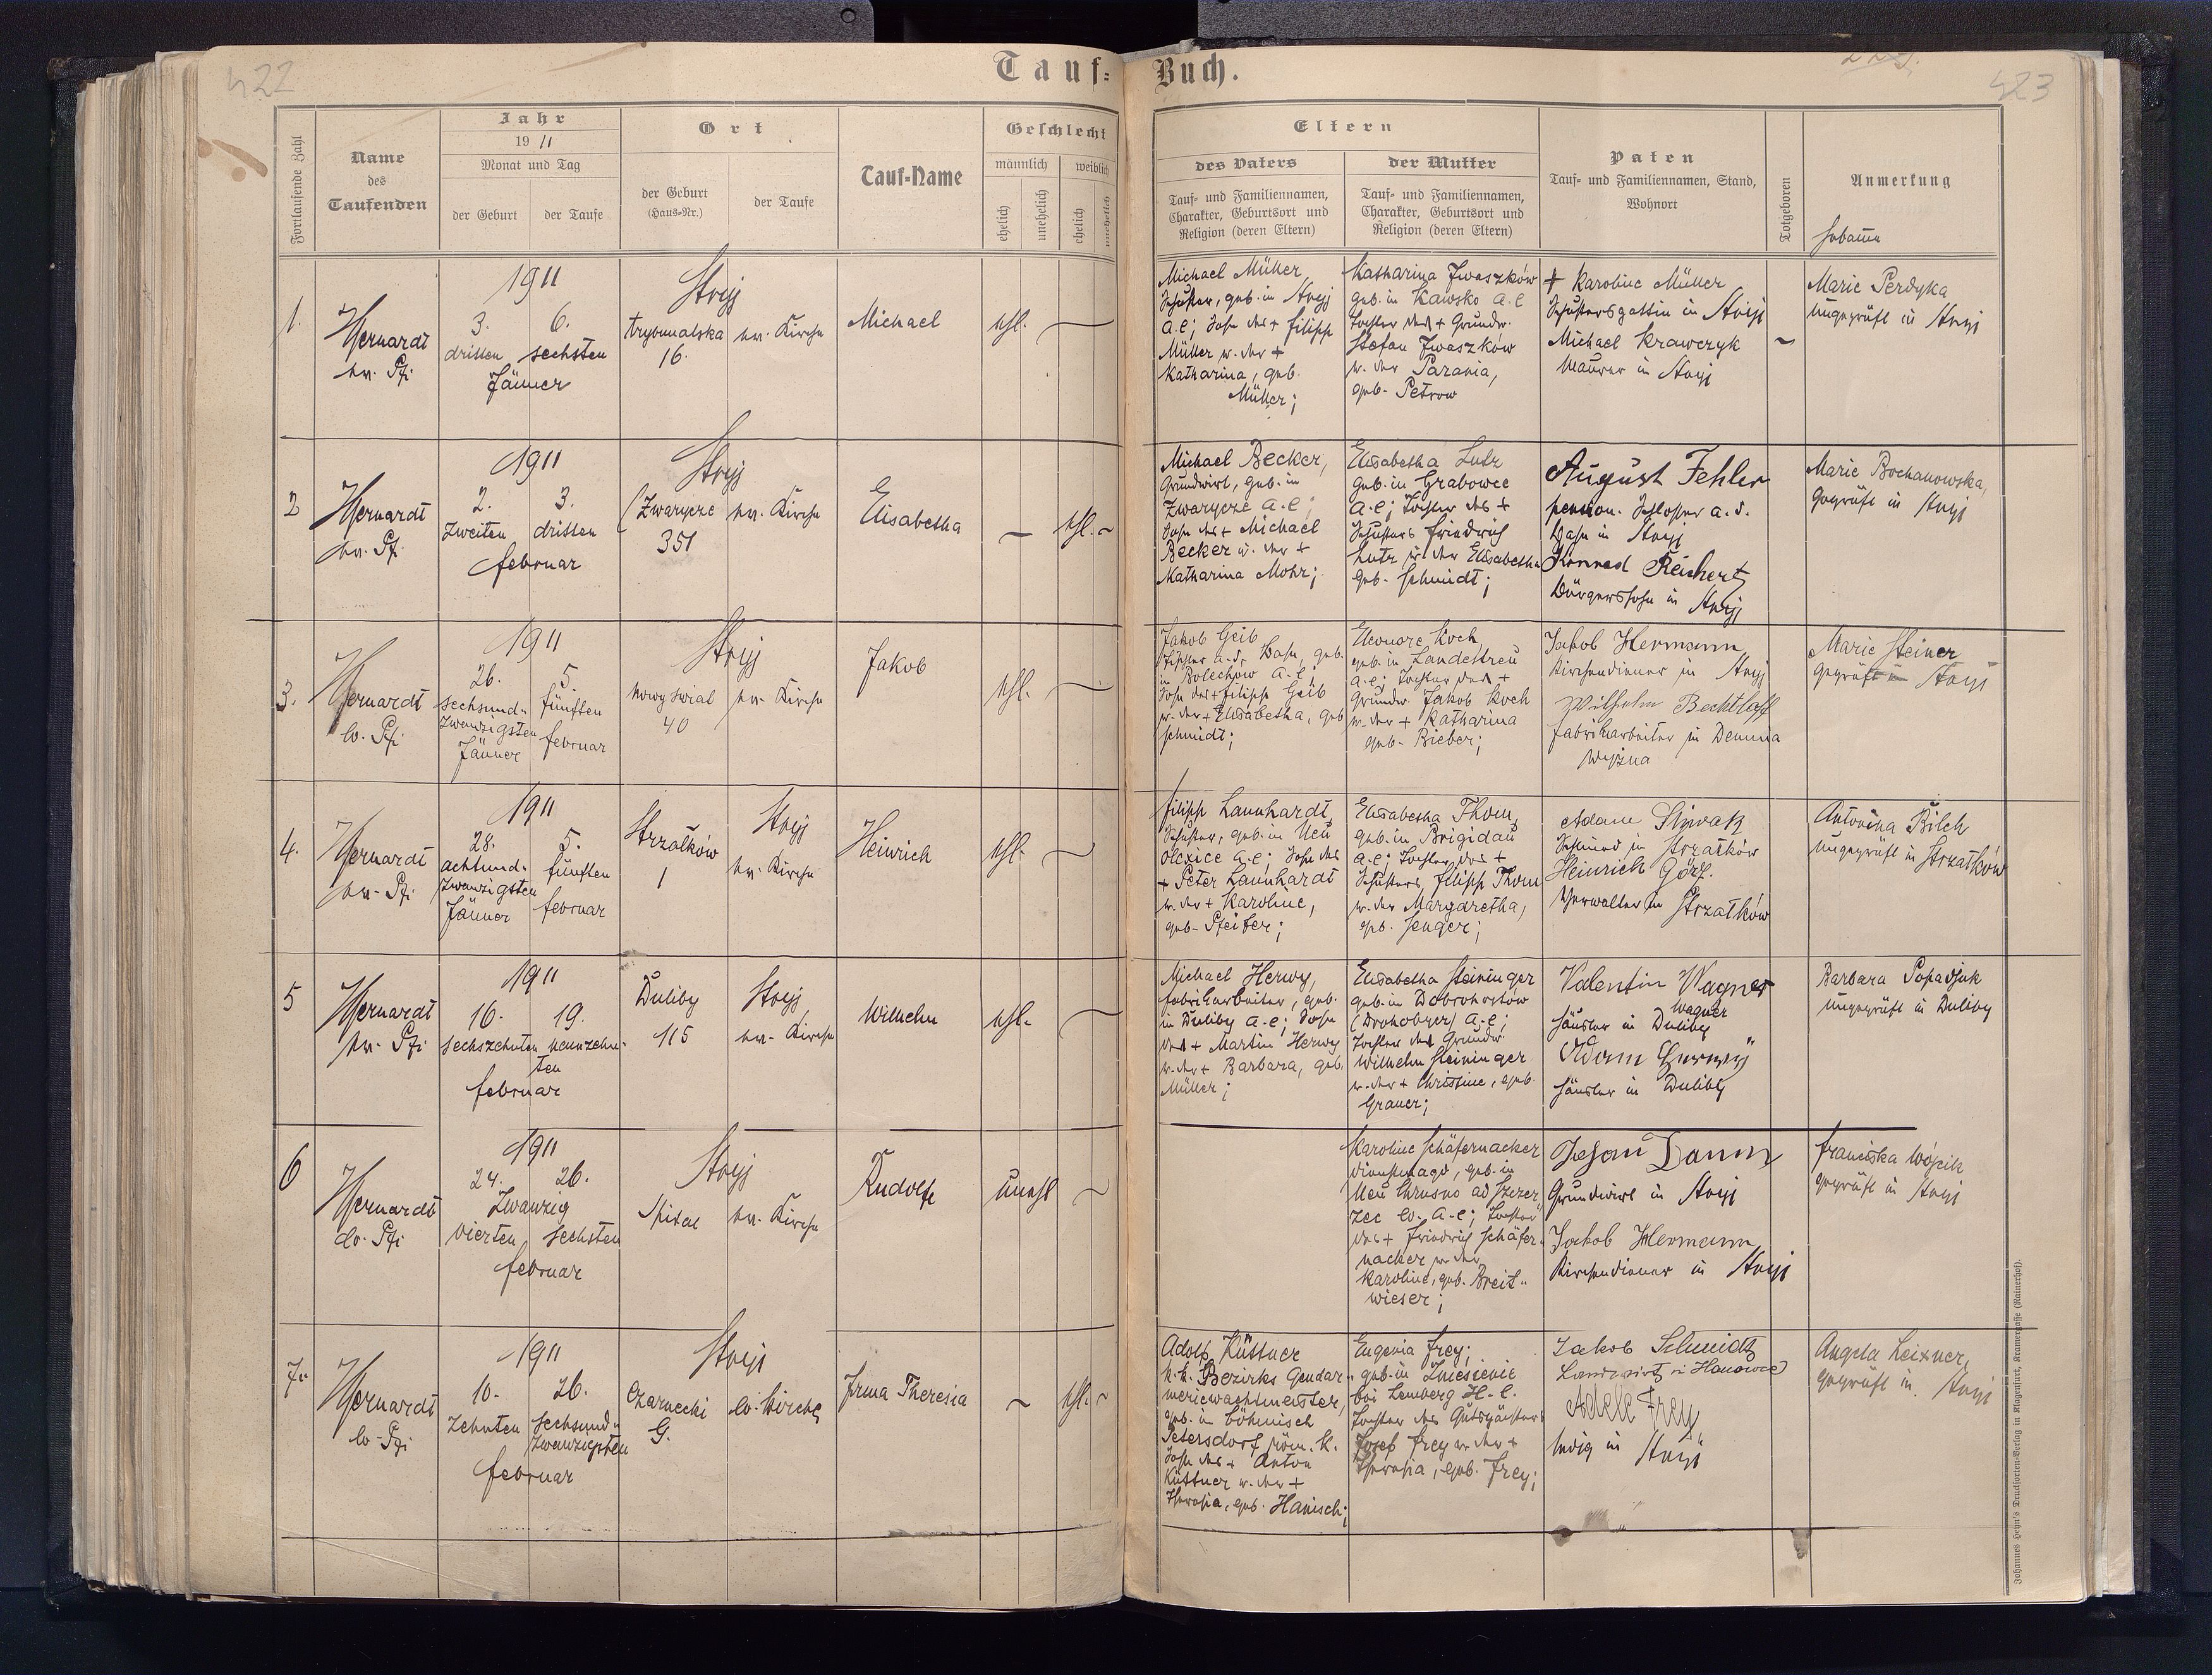 422
Tauf-Buch.
423
Fortlaufende Zahl
Name
des
Taufenden
Jahr
1911
Monat und Tag
der Geburt
der Taufe
Ort
der Geburt
(Haus-Nr.)
der Taufe
Tauf-Name
Geschlecht
männlich
weiblich
ehelich
unehelich
ehelich
unehelich
Eltern
des Vaters
Tauf- und Familiennamen,
Charakter, Geburtsort und
Religion (deren Eltern)
der Mutter
Tauf- und Familiennamen,
Charakter, Geburtsort und
Religion (deren Eltern)
Paten
Tauf- und Familiennamen, Stand,
Wohnort
Totgeboren
Anmerkung
Hebamme
1.
Hernardt
ev. Pfr
1911
3. 6.
dritten sechsten
Jänner
Stryj
trybunalska ev. Kirche
16.
Michael
ehl.
Michael Müller,
Schuster, geb. in Stryj
a.e; Sohn des + Filipp
Müller u. der +
Katharina, geb.
Müller;
Katharina Iwaszków
geb. in Kawsko a.e
Tochter des + Grundw.
Stefan Iwaszków
u. der Parania,
geb. Petrow
+ Karoline Müller
Schustersgattin in Stryj
Michael Krawczyk
Maurer in Stryj
Marie Perdyka
ungeprüft in Stryj
2
Hernardt
ev. Pf.
1911
2. 3.
zweiten dritten
Februar
Stryj
(Zwarycze ev. Kirche
351
Elisabetha
ehl.
Michael Becker,
Grundwirt, geb. in
Zwarycze a.e;
Sohn des + Michael
Becker u. der +
Katharina Mohr;
Elisabetha Lutz
geb. in Grabowce
a.e; Tochter des +
Schusters Friedrich
Lutz u. der Elisabetha
geb. Schmidt;
August Fehler
pension. Schlosser a. d.
Bahn in Stryj
Konrad Reichert
Bürgerssohn in Stryj
Marie Bochanowska,
geprüft in Stryj
3.
Hernardt
ev. Pfr
1911
26. 5.
sechsund- fünften
zwanzigsten
Jänner Februar
Stryj
nowy swiat ev. Kirche
40
Jakob
ehl.
Jakob Geib
Tischler a. d. Bahn, geb.
in Bolechow a.e;
Sohn des + Filipp Geib
u. der + Elisabetha, geb
Schmidt;
Eleonore Koch,
geb. in Landestreu
a.e; Tochter des +
Grundw. Jakob Koch
u. der + Katharina
geb. Bieber;
Jakob Hermann
Kirchendiener in Stryj
Wilhelm Bechtloff
Fabriksarbeiter in Demnia
Wyżna
Marie Steiner
geprüft in Stryj
4.
Hernardt
ev. Pfr
1911
28. 5.
achtund- fünften
zwanzigsten
Jänner Februar
Strzałków Stryj
1 ev. Kirche
Heinrich
ehl.
Filipp Launhardt,
Schuster, geb. in Neu
Olexice a.e; Sohn des
+ Peter Launhardt
u. der + Karoline,
geb. Pfeifer;
Elisabetha Thom,
geb. in Brigidau
a.e; Tochter des +
Schusters Filipp Thom
u. der Margaretha,
geb. Senger;
Adam Slipak
Schmied in Strzałków
Heinrich Görz.
Verwalter in Strzałków
Antonina Bilch
ungeprüft in Strzałków
5
Hernardt
ev. Pfr
1911
16. 19.
sechszehnten neunzehn-
ten
Februar
Duliby Stryj
115 ev. Kirche
Wilhelm
ehl.
Michael Herwy,
Fabriksarbeiter, geb.
in Duliby a.e; Sohn
des + Martin Herwy
u. der + Barbara, geb.
Müller;
Elisabetha Steininger
geb. in Dobrohostów
(Drohobycz) a.e;
Tochter des Grundw.
Wilhelm Steininger
u. der + Christine, geb.
Grauer;
Valentin Wagner
Wagner
Häusler in Duliby
Adam Herwy
Häusler in Duliby
Barbara Popadjuk
ungeprüft in Duliby
6
Hernardt
ev. Pfr
1911
24. 26.
Zwanzig
vierten sechsten
Februar
Stryj
Spital ev. Kirche
Rudolf
unehl
Karoline Schäfernacker
Dienstmagd, geb. in
Neu Chrusno ad Szczer
zec ev. a.e; Tochter
des + Friedrich Schäfer-
nacker u. der
Karoline, geb. Breit-
wieser;
Johann Damm
Grundwirt in Stryj
Jakob Hermann
Kirchendiener in Stryj
Franciska Wójcik
geprüft in Stryj
7.
Hernardt
ev. Pfr
1911
10. 26.
Zehnten sechsund-
zwanzigsten
Februar
Stryj
Czarnecki ev. Kirche
G.
Irma Theresia
ehl.
Adolf Küttner
k.k. Bezirks Gendar-
meriewachtmeister,
geb. in Böhmisch
Petersdorf röm. k.
Sohn des + Anton
Küttner u. der +
Theresia, geb. Hanisch;
Eugenia Frey;
geb. in Zniesienie
bei Lemberg H. C.
Tochter des Gutspächters
Josef Frey u. der +
Theresia, geb. Frey;
Jakob Schmidt
Landwirt in Hanowce
Adele Frey,
ledig in Stryj
Angela Leixner,
geprüft in Stryj
Johannes Heyn's Drucksorten-Verlag in Klagenfurt, Kramergasse (Rainerhof).